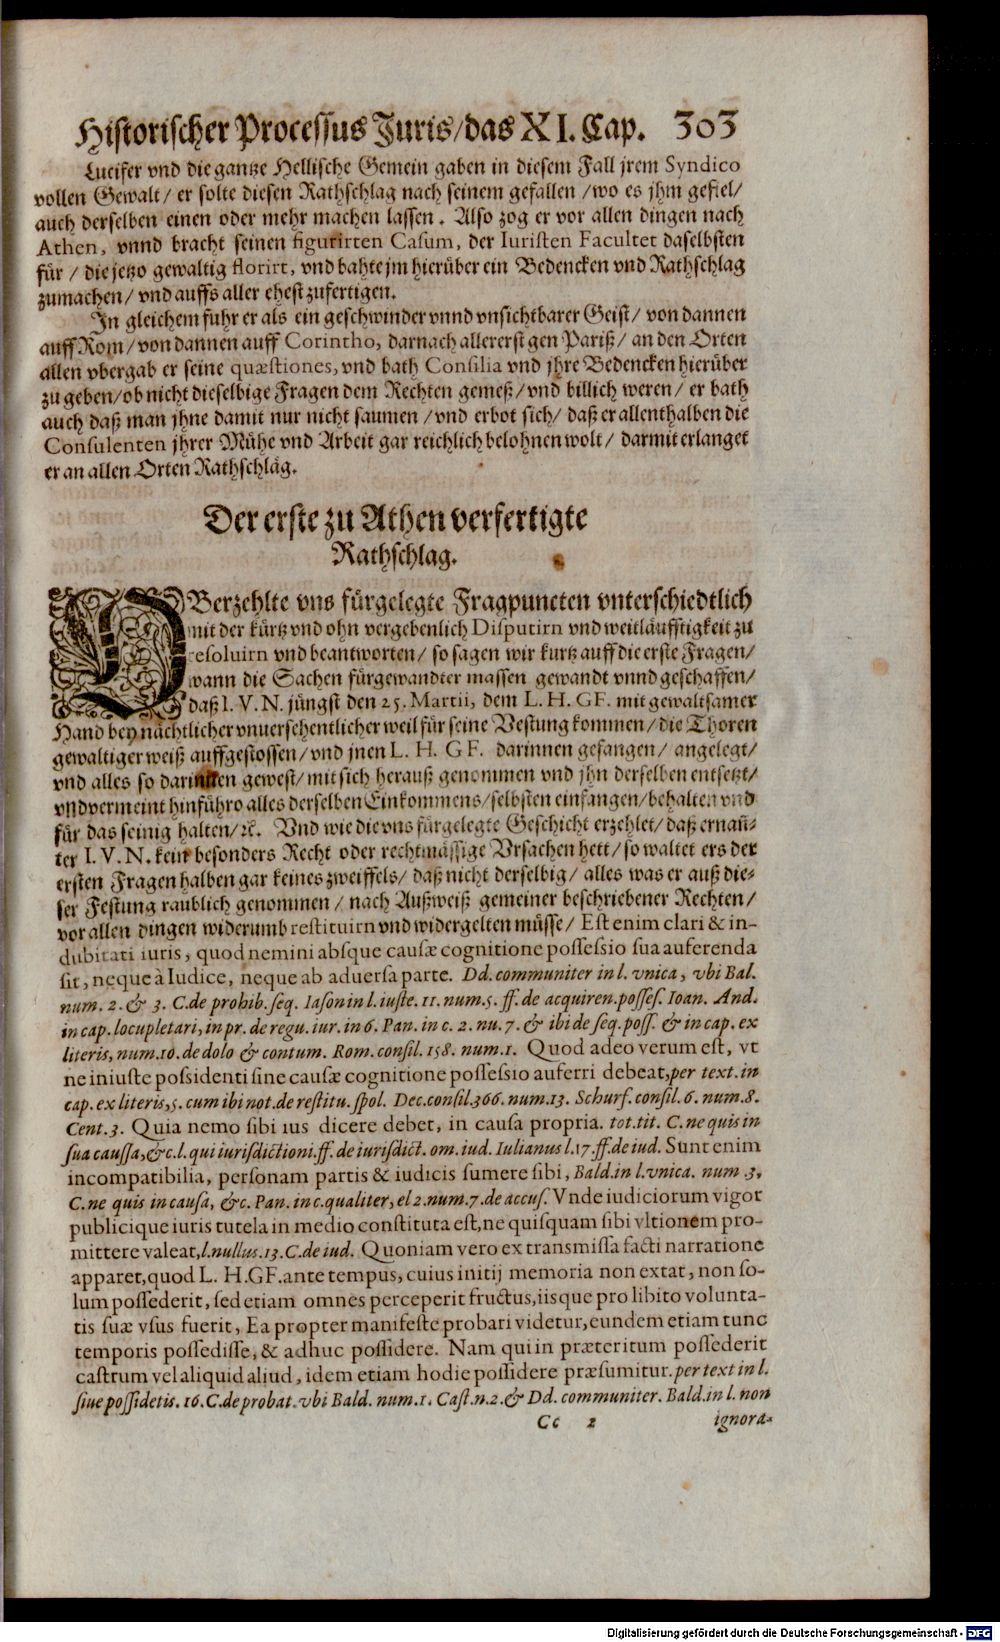 Historischer Processus Juris/das XI. Cap. 303
Lucifer vnd die gantze Hellische Gemein gaben in diesem Fall jrem Syndico
vollen Gewalt/ er solte diesen Rathschlag nach seinem gefallen /wo es jhm gefiel/
auch derselben einen oder mehr machen lassen. Also zog er vor allen dingen nach
Athen, vnnd bracht seinen figurirten Casum, der Iuristen Facultet daselbsten
für / die jetzo gewaltig florirt, vnd bahte jm hierüber ein Bedencken vnd Rathschlag
zumachen/ vnd auffs aller ehest zufertigen.
In gleichem fuhr er als ein geschwinder vnnd vnsichtbarer Geist/ von dannen
auff Rom/ von dannen auff Corintho, darnach allererst gen Pariß/ an den Orten
allen vbergab er seine quæstiones, vnd bath Consilia vnd jhre Bedencken hierüber
zu geben/ob nicht dieselbige Fragen dem Rechten gemeß/ vnd billich weren/ er bath
auch daß man jhne damit nur nicht saumen /vnd erbot sich/ daß er allenthalben die
Consulenten jhrer Mühe vnd Arbeit gar reichlich belohnen wolt/ darmit erlanget
er an allen Orten Rathschläg.
Der erste zu Athen verfertigte
Rathschlag.
VBerzehlte vns fürgelegte Fragpuncten vnterschiedtlich
mit der kürtz vnd ohn vergebenlich Disputirn vnd weitläufftigkeit zu
resoluirn vnd beantworten/ so sagen wir kurtz auff die erste Fragen/
wann die Sachen fürgewandter massen gewandt vnnd geschaffen/
daß I. V. N. jüngst den 25. Martii, dem L. H. GF. mit gewaltsamer
Hand bey nächtlicher vnuersehentlicher weil für seine Vestung kommen/ die Thoren
gewaltiger weiß auffgestossen/ vnd jnen L. H. GF. darinnen gefangen/ angelegt/
vnd alles so darinnen gewest/ mit sich herauß genommen vnd jhn derselben entsetzt/
vnd vermeint hinführo alles derselben Einkommens/selbsten einfangen/behalten vnd
für das seinig halten/ꝛc. Vnd wie die vns fürgelegte Geschicht erzehlet/ daß ernañ-
ter I. V. N. kein besonders Recht oder rechtmässige Vrsachen hett/ so waltet ers der
ersten Fragen halben gar keines zweiffels/ daß nicht derselbig/ alles was er auß die-
ser Festung raublich genommen / nach Außweiß gemeiner beschriebener Rechten/
vor allen dingen widerumb restituirn vnd widergelten müsse/ Est enim clari & in-
dubitati iuris, quod nemini absque causæ cognitione possessio sua auferenda
sit, neque à Iudice, neque ab aduersa parte. Dd. communiter in l. vnica, vbi Bal.
num. 2. & 3. C. de prohib. seq. Iason in l. iuste. 11. num. 5. ff. de acquiren. posses. Ioan. And.
in cap. locupletari, in pr. de regu. iur. in 6. Pan. in c. 2. nu. 7. & ibi de seq. poss. & in cap. ex
literis, num. 10. de dolo & contum. Rom. consil. 158. num. 1. Quod adeo verum est, vt
ne iniuste possidenti sine causæ cognitione possessio auferri debeat, per text. in
cap. ex literis, 5. cum ibi not. de restitu. spol. Dec. consil. 366. num. 13. Schurf. consil. 6. num. 8.
Cent. 3. Quia nemo sibi ius dicere debet, in causa propria. tot. tit. C. ne quis in
sua caussa, &c. l. qui iurisdictioni. ff. de iurisdict. om. iud. Iulianus l. 17. ff. de iud. Sunt enim
incompatibilia, personam partis & iudicis sumere sibi, Bald. in l. vnica. num. 3.
C. ne quis in causa, &c. Pan. in c. qualiter, el 2. num. 7. de accus. Vnde iudiciorum vigor
publicique iuris tutela in medio constituta est, ne quisquam sibi vltionem pro-
mittere valeat, l. nullus. 13. C. de iud. Quoniam vero ex transmissa facti narratione
apparet, quod L. H. GF. ante tempus, cuius initij memoria non extat, non so-
lum possederit, sed etiam omnes perceperit fructus, iisque pro libito volunta-
tis suæ vsus fuerit, Ea propter manifeste probari videtur, eundem etiam tunc
temporis possedisse, & adhuc possidere. Nam qui in præteritum possederit
castrum vel aliquid aliud, idem etiam hodie possidere præsumitur. per text in l.
siue possidetis. 16. C. de probat. vbi Bald. num. 1. Cast. n. 2. & Dd. communiter. Bald. in l. non
Cc 2 ignora-
Digitalisierung gefördert durch die Deutsche Forschungsgemeinschaft - DFG